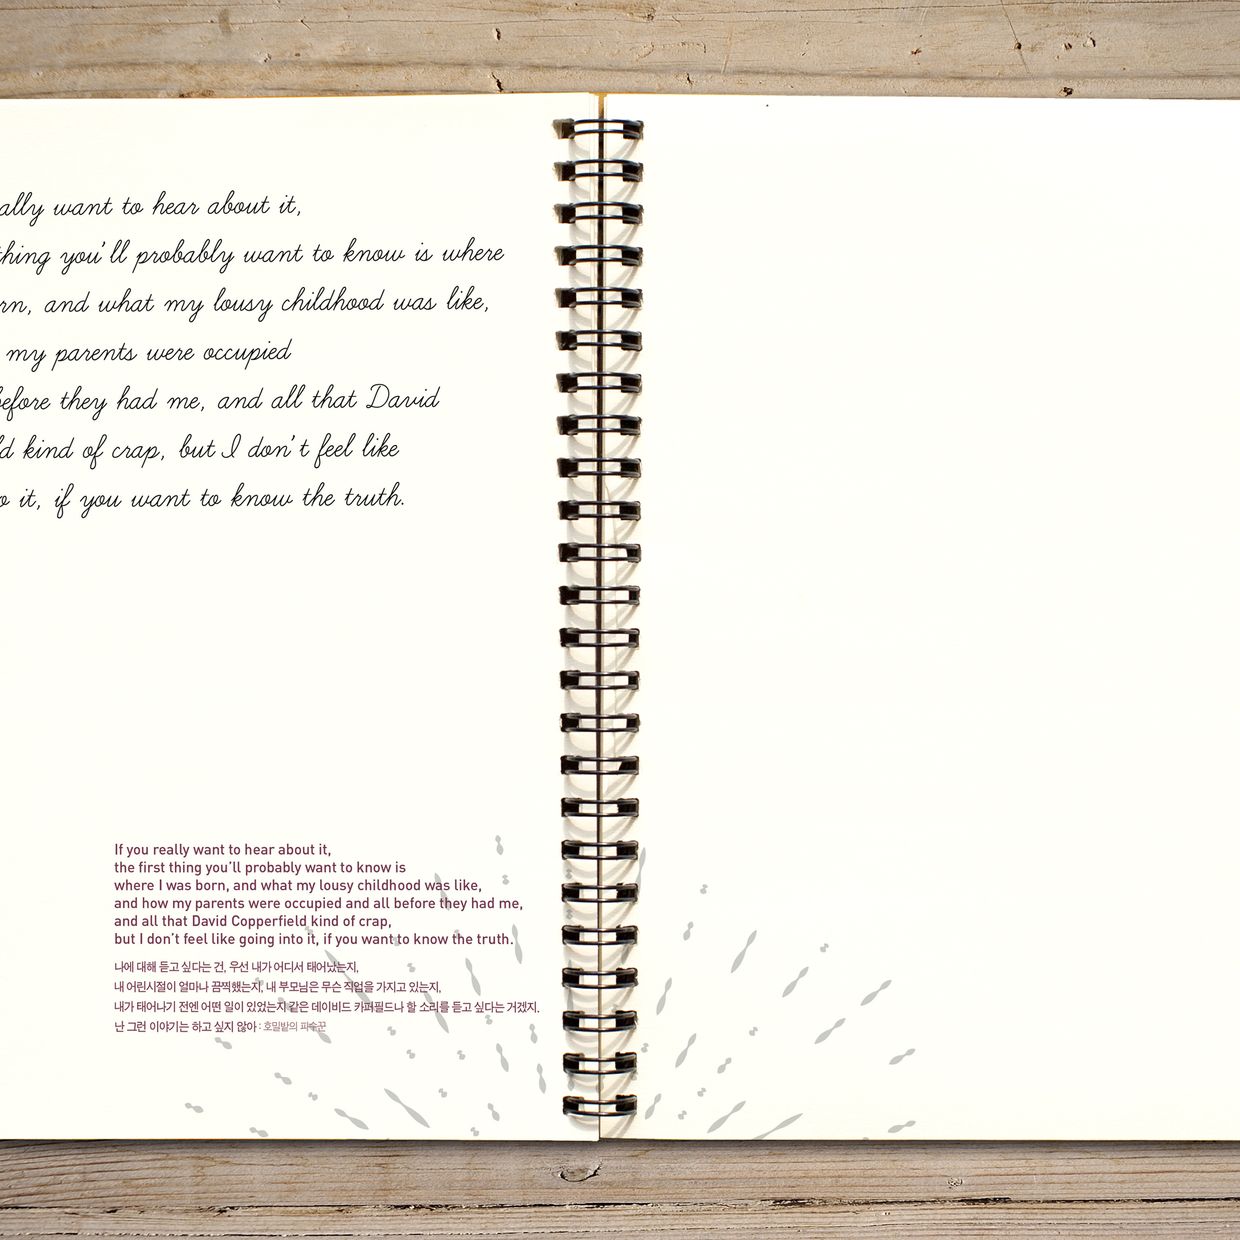 ally want to hear about it,
thing you'll probably want to know is where
rn, and what my lousy childhood was like,
my parents were occupied
before they had me, and all that David
ld kind of crap, but I don't feel like
o it, if you want to know the truth.
If you really want to hear about it,
the first thing you'll probably want to know is
where I was born, and what my lousy childhood was like,
and how my parents were occupied and all before they had me,
and all that David Copperfield kind of crap,
but I don't feel like going into it, if you want to know the truth.
나에 대해 듣고 싶다는 건, 우선 내가 어디서 태어났는지,
내 어린시절이 얼마나 끔찍했는지, 내 부모님은 무슨 직업을 가지고 있는지,
내가 태어나기 전엔 어떤 일이 있었는지 같은 데이비드 카퍼필드나 할 소리를 듣고 싶다는 거겠지.
난 그런 이야기는 하고 싶지 않아 : 호밀밭의 파수꾼